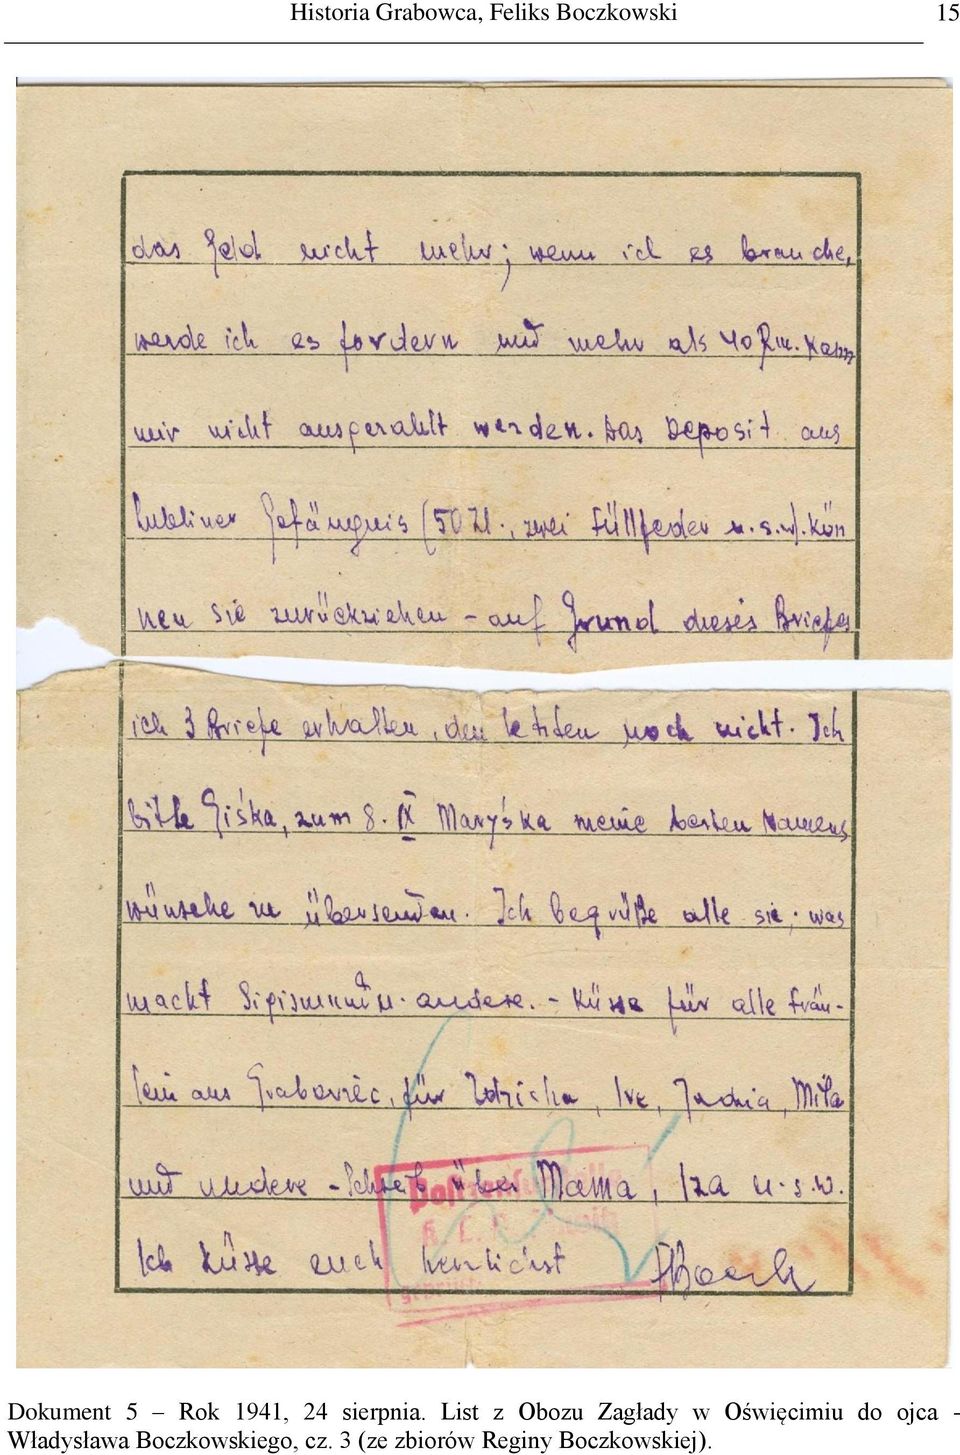 Historia Grabowca, Feliks Boczkowski 15
das Geld nicht mehr; wenn ich es brauche,
werde ich es fordern und mehr als 40 Rm. kann
mir nicht ausgezahlt werden. Das Deposit aus
Lubliner Gefängnis (50 Zl., zwei Füllfeder u.s.w). kön
nen sie zurückziehen - auf Grund dieses Briefes
ich 3 Briefe erhalten, den letzten noch nicht. Ich
bitte Giśka, zum 8. IX Maryśka meine besten Namens
wünsche zu übersenden. Ich begrüße alle sie; was
macht Sigismund u. andere. - Küsse für alle Fräu-
lein aus Grabowiec, für Zdzicha, Ire, Jadzia, Mila
und andere - Schreib über Mama, Iza u.s.w.
Ich küsse euch herzlichst FBoczk
Postzensurstelle
K.L. Auschwitz
geprüft
Dokument 5 – Rok 1941, 24 sierpnia. List z Obozu Zagłady w Oświęcimiu do ojca -
Władysława Boczkowskiego, cz. 3 (ze zbiorów Reginy Boczkowskiej).